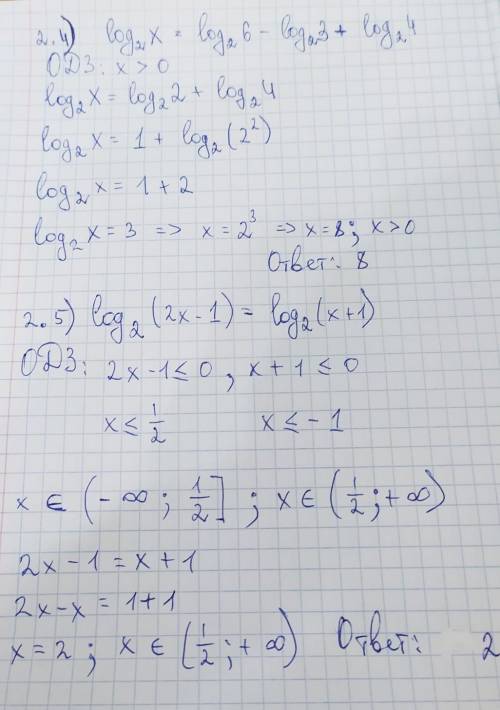 2.4) log₂x = log₂6 - log₂3 + log₂4
ОДЗ: x > 0
log₂x = log₂2 + log₂4
log₂x = 1 + log₂(2²)
log₂x = 1 + 2
log₂x = 3 => x = 2³ => x = 8; x > 0
Ответ: 8
2.5) log₂(2x-1) = log₂(x+1)
ОДЗ: 2x-1 ≤ 0, x+1 ≤ 0
x ≤ 1/2 x ≤ -1
x ∈ (-∞; 1/2]; x ∈ (1/2; +∞)
2x - 1 = x + 1
2x - x = 1 + 1
x = 2; x ∈ (1/2; +∞) Ответ: 2